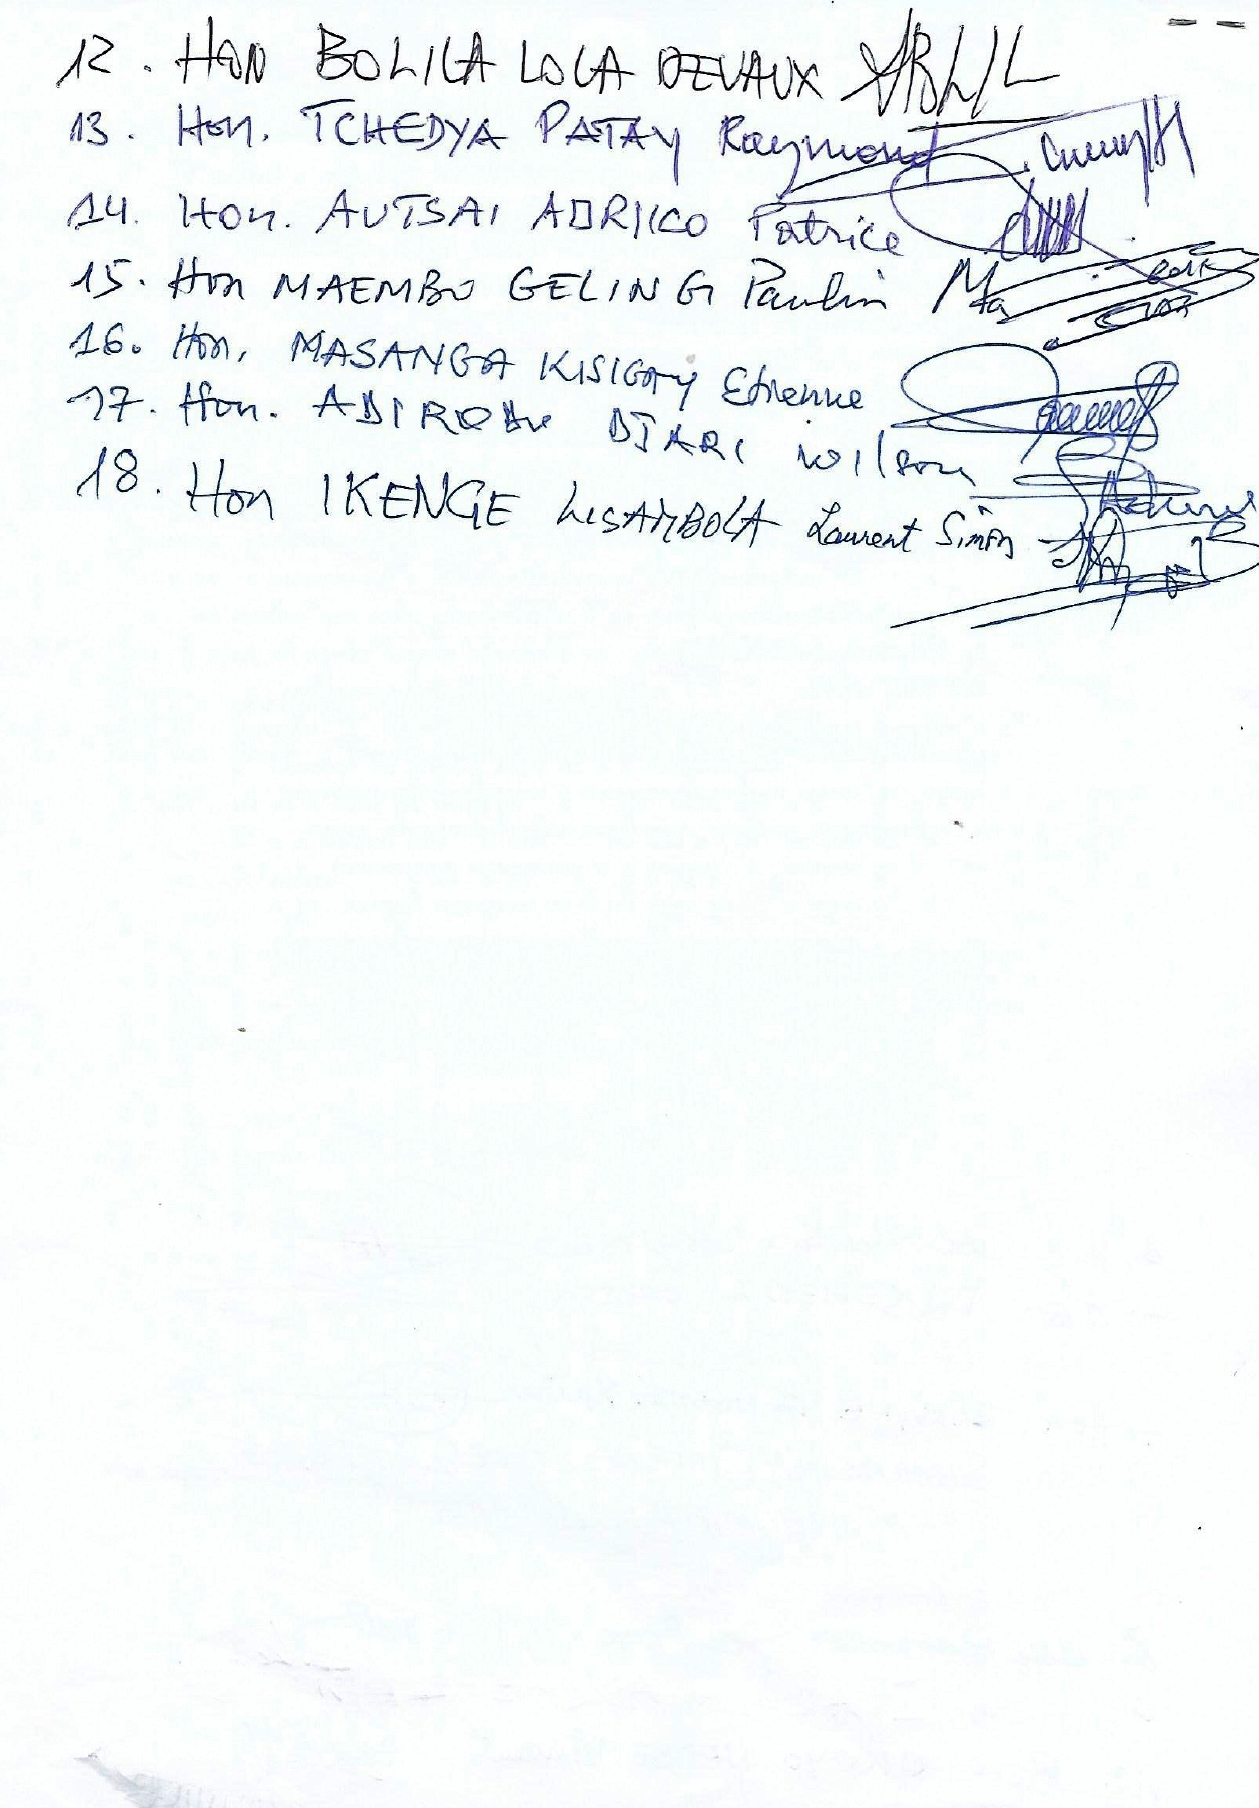 12. HON BOLILA LOLA DEVAUX
13. Hon. TCHEDYA PATAY Raymond
14. Hon. AUTSAI ADRIKO Patrice
15. Hon MAEMBO GELINGI Paulin
16. Hon. MASANGA KISIGAY Etienne
17. Hon. ADIROHU DJARI Wilson
18. Hon IKENGE LISAMBOLA Laurent Simon